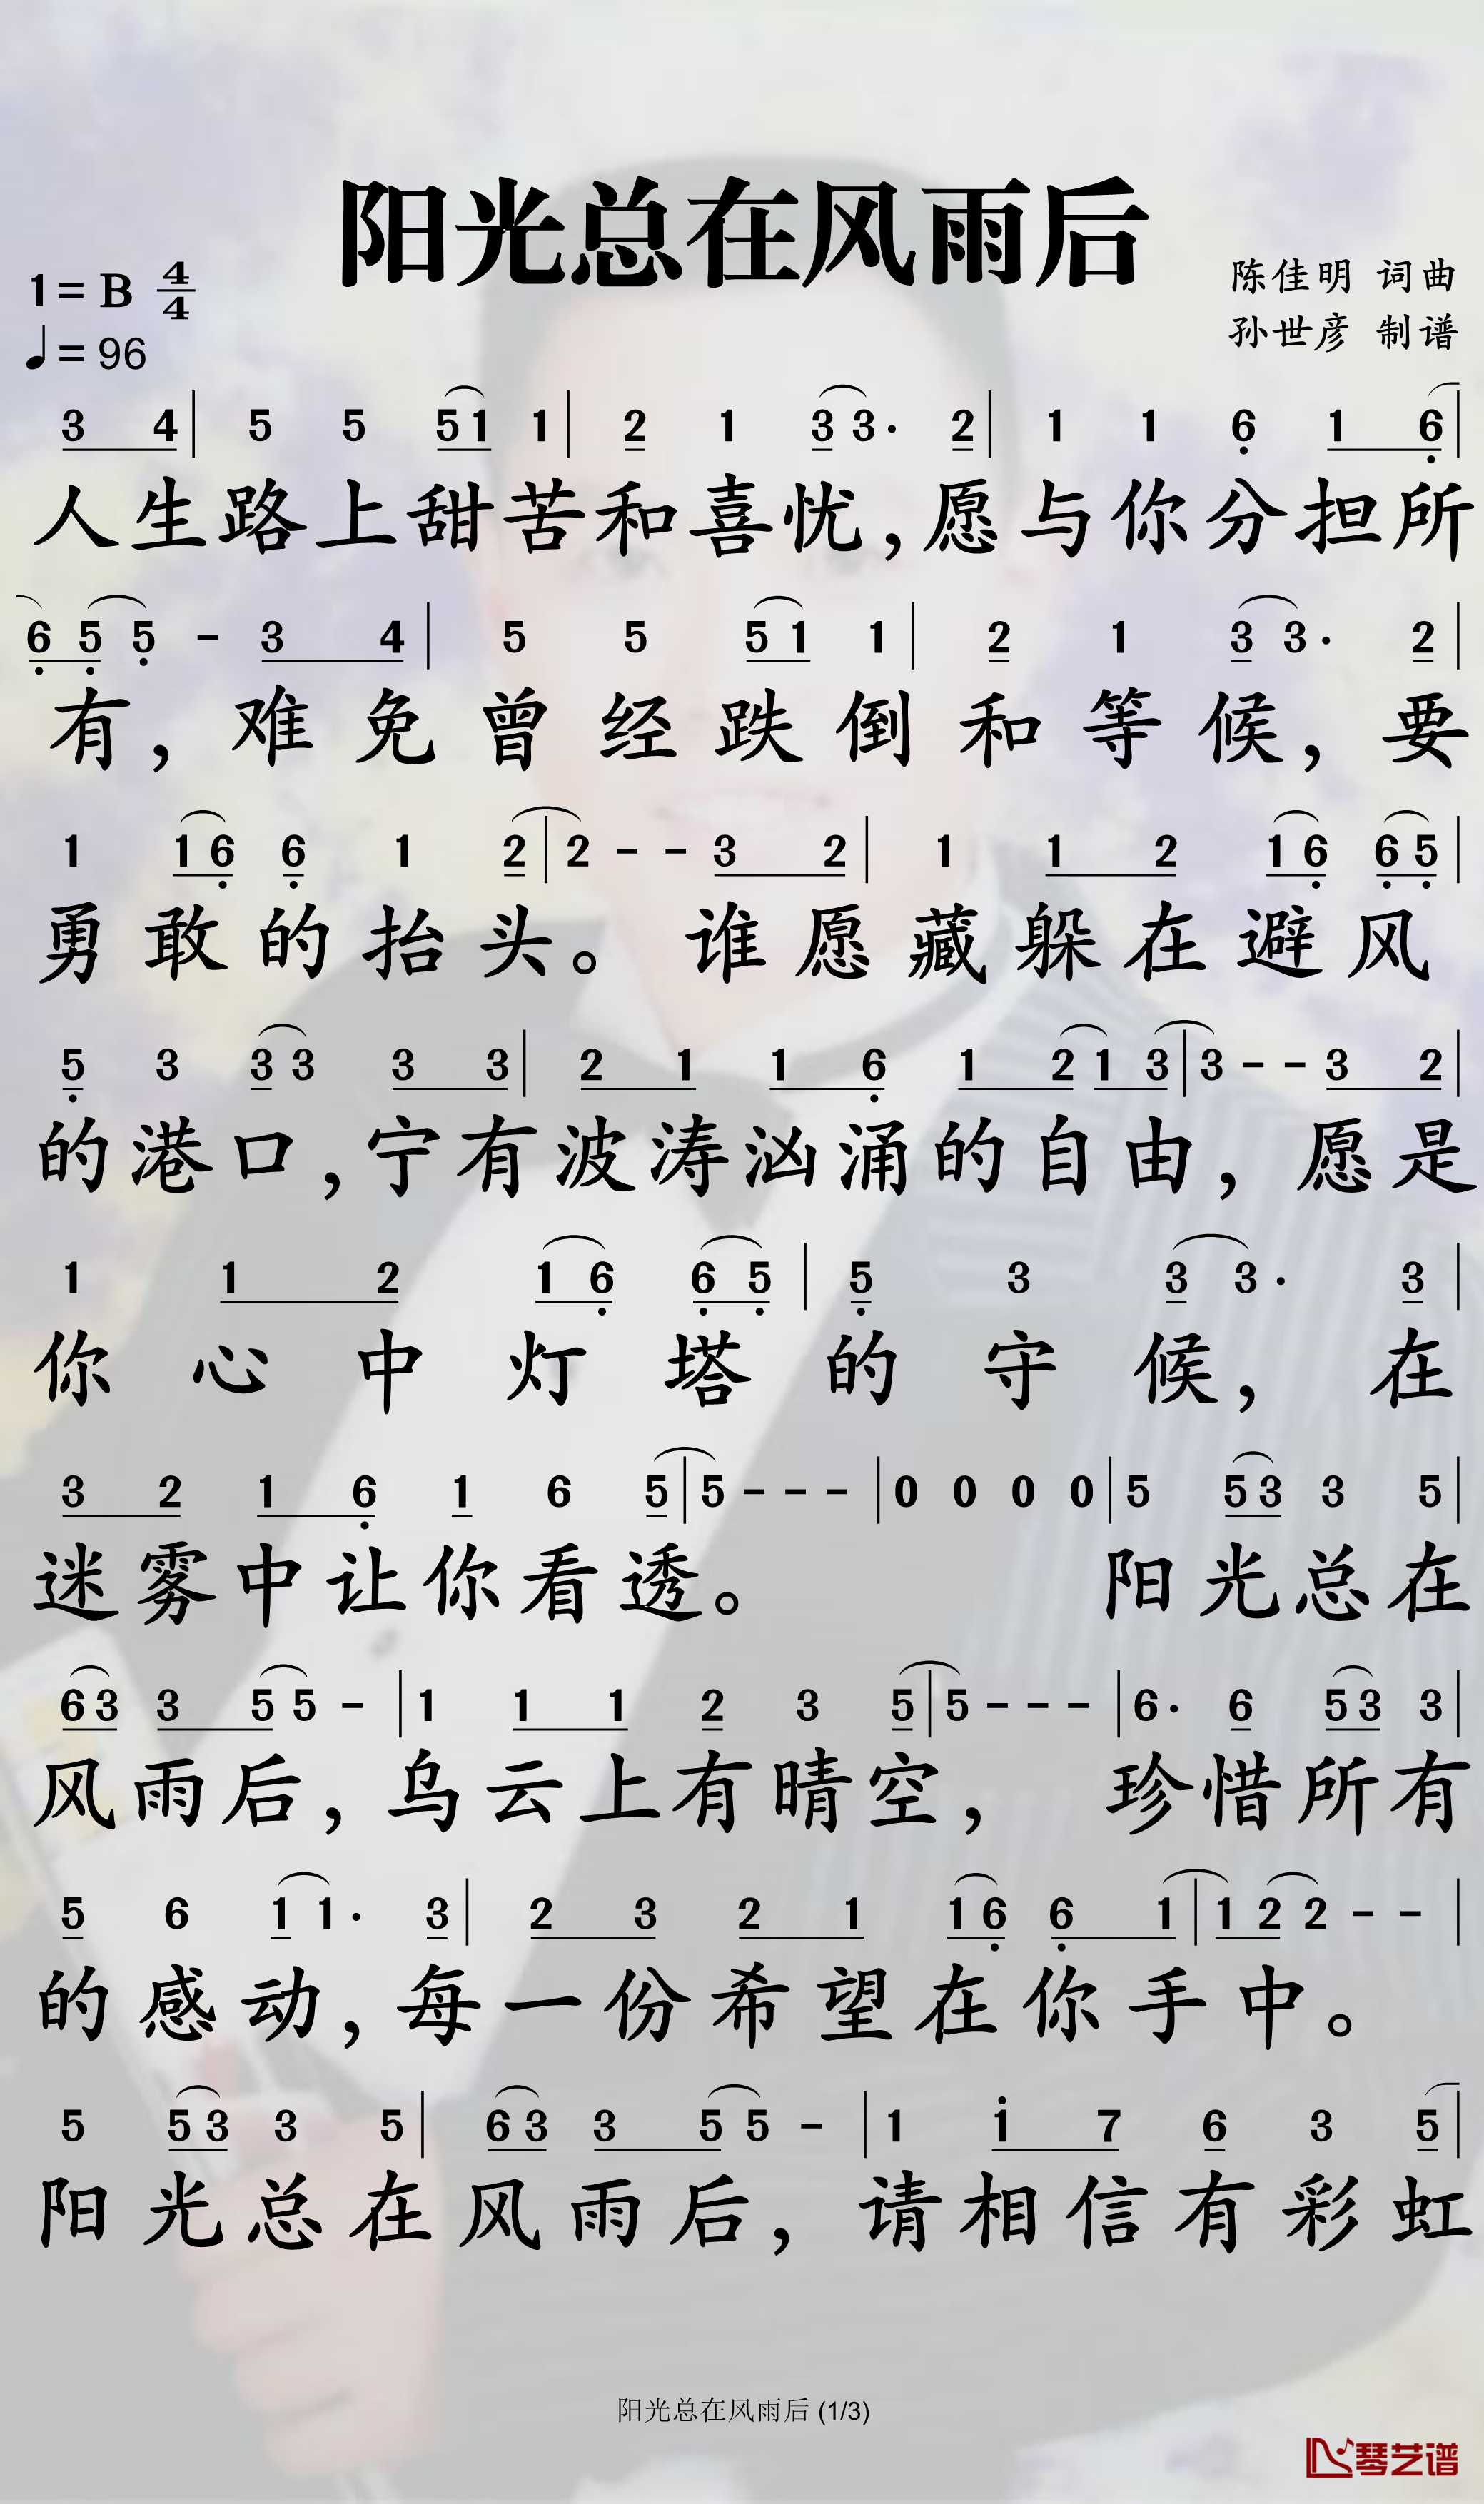 阳光总在风雨后
1= B 4/4
陈佳明 词曲
♩= 96
孙世彦 制谱
3 4 | 5 5 5 1 1 | 2 1 3 3· 2 | 1 1 6 1 6 |
人生路上甜苦和喜忧,愿与你分担所
6 5 5 - 3 4 | 5 5 5 1 1 | 2 1 3 3· 2 |
有,难免曾经跌倒和等候,要
1 1 6 6 1 2 | 2 - - 3 2 | 1 1 2 1 6 6 5 |
勇敢的抬头。谁愿藏躲在避风
5 3 3 3 3 3 | 2 1 1 6 1 2 1 3 | 3 - - 3 2 |
的港口,宁有波涛汹涌的自由,愿是
1 1 2 1 6 6 5 | 5 3 3 3· 3 |
你心中灯塔的守候,在
3 2 1 6 1 6 5 | 5 - - - | 0 0 0 0 | 5 5 3 3 5 |
迷雾中让你看透。 阳光总在
6 3 3 5 5 - | 1 1 1 2 3 5 | 5 - - - | 6· 6 5 3 3 |
风雨后,乌云上有晴空, 珍惜所有
5 6 1 1· 3 | 2 3 2 1 1 6 6 1 | 1 2 2 - - |
的感动,每一份希望在你手中。
5 5 3 3 5 | 6 3 3 5 5 - | 1 i 7 6 3 5 |
阳光总在风雨后,请相信有彩虹
阳光总在风雨后 (1/3)
琴艺谱